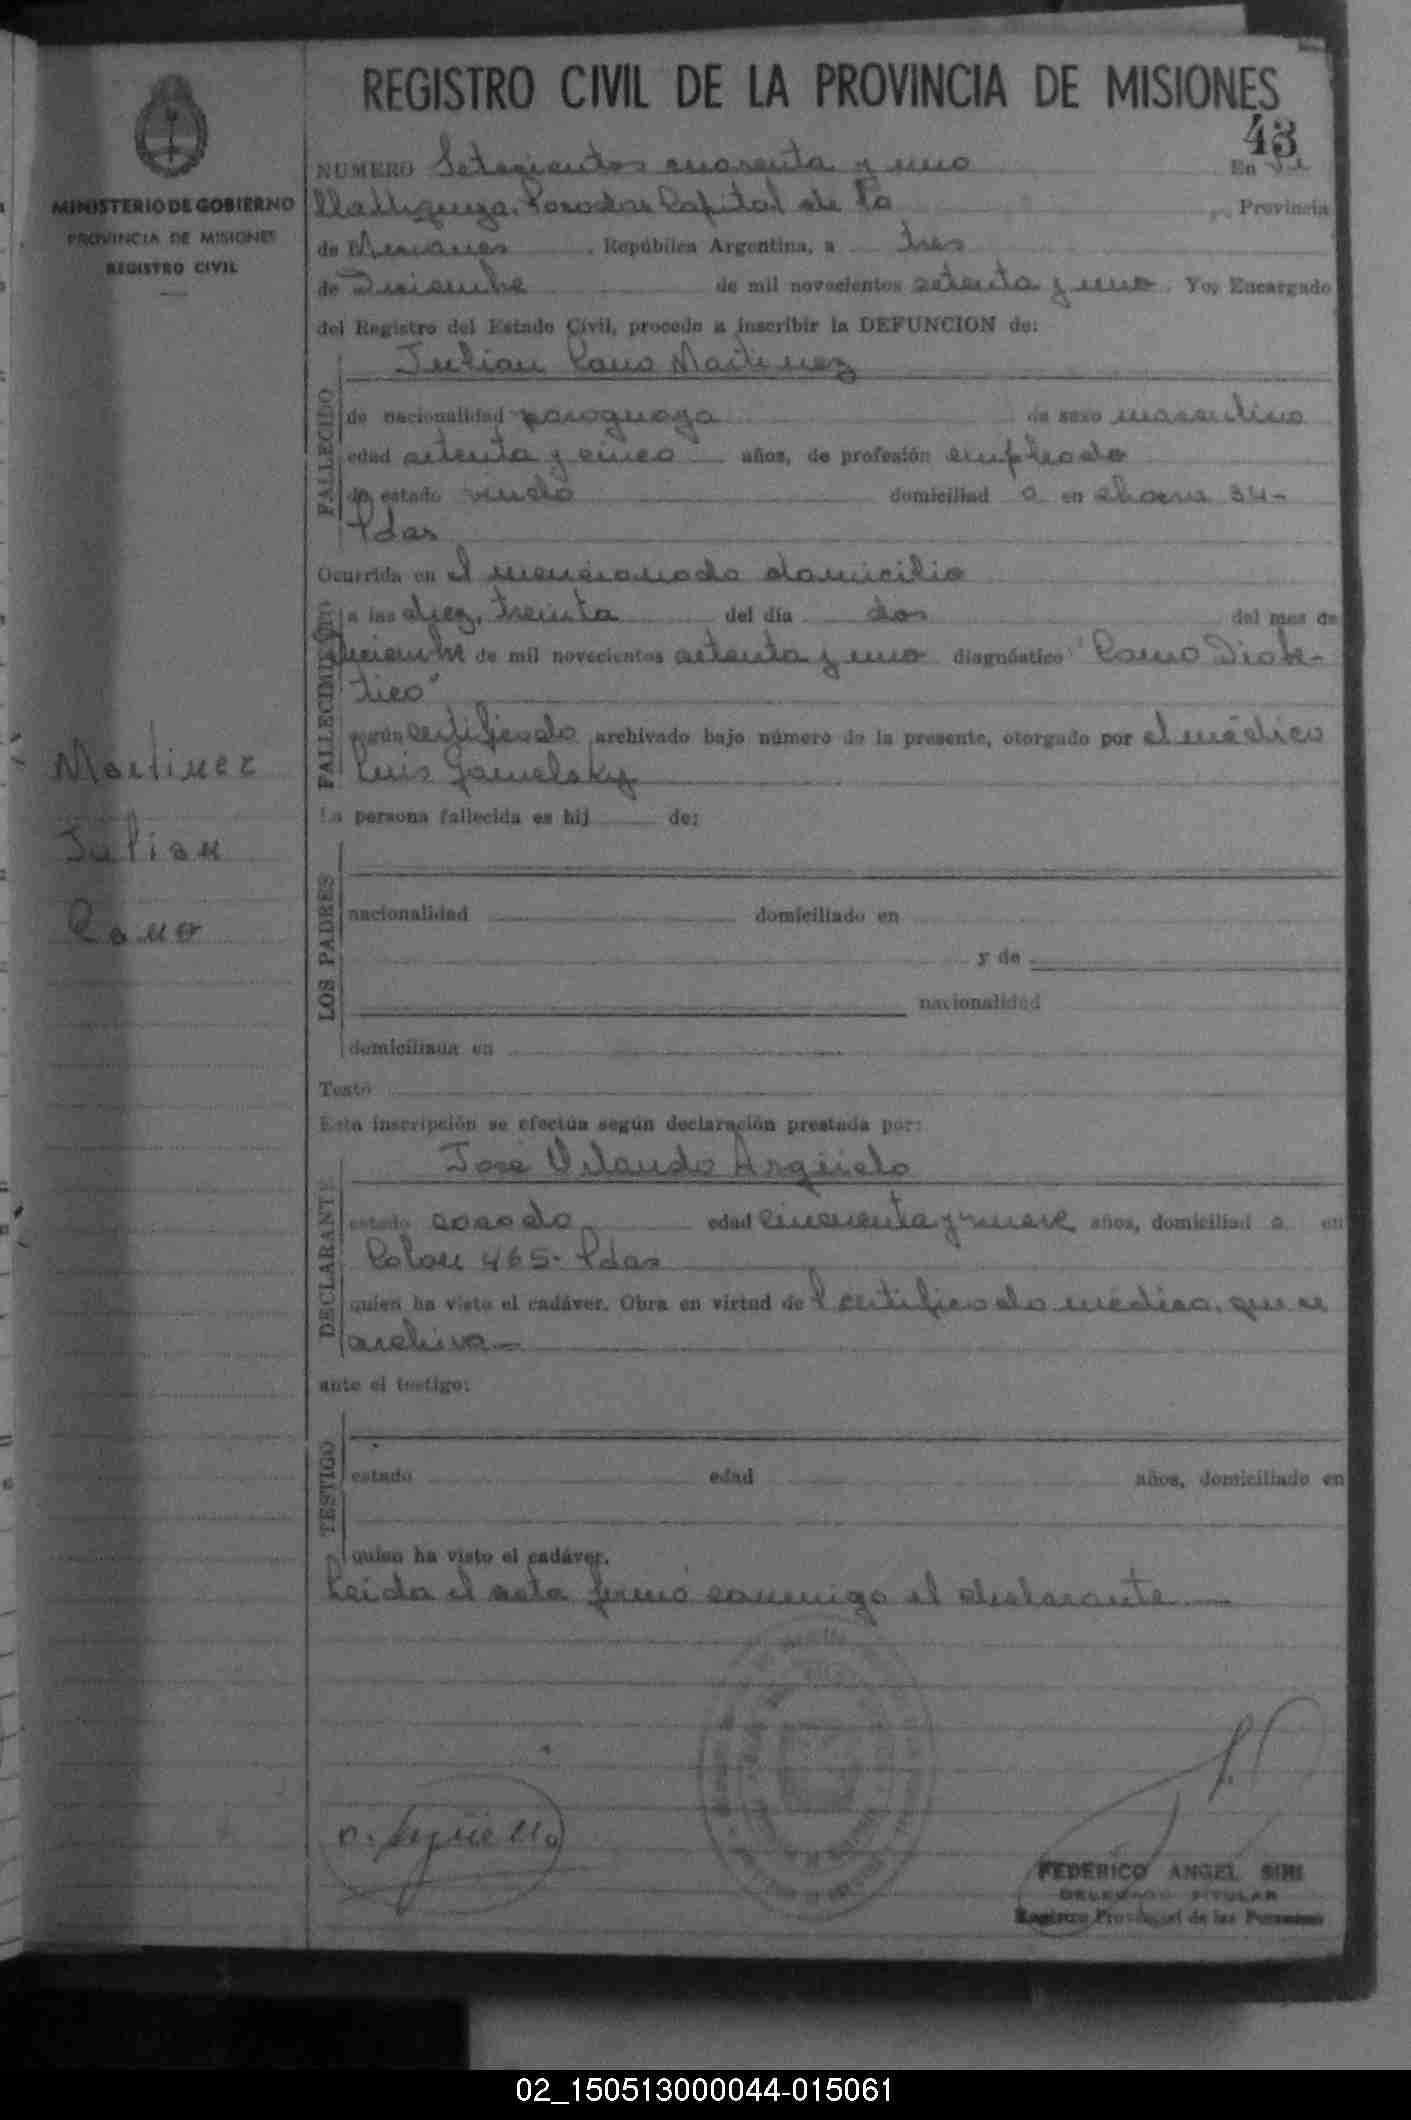 REGISTRO CIVIL DE LA PROVINCIA DE MISIONES
43
MINISTERIO DE GOBIERNO
PROVINCIA DE MISIONES
REGISTRO CIVIL
NUMERO Setecientos cuarenta y uno En
Posadas Capital de la Provincia
de Misiones, República Argentina, a tres
de Diciembre de mil novecientos setenta y uno Yo, Encargado
del Registro del Estado Civil, procedo a inscribir la DEFUNCION de:
Julian Cano Martinez
FALLECIDO
de nacionalidad paraguaya de sexo masculino
edad setenta y cinco años, de profesión empleado
de estado viudo domiciliad o en chacra 34-
Pdas
Ocurrida en el mencionado domicilio
FALLECIMIENTO
a las diez, treinta del día dos del mes de
diciembre de mil novecientos setenta y uno diagnóstico "Coma Diabe-
tico"
según certificado archivado bajo número de la presente, otorgado por el médico
Luis
Martinez
Julian
Cano
La persona fallecida es hij de:
LOS PADRES
nacionalidad domiciliado en
y de
nacionalidad
domiciliada en
Testó
Esta inscripción se efectúa según declaración prestada por:
José Orlando Argüelo
DECLARANTE
estado casado edad cincuenta y nueve años, domiciliad o en
Colon 465- Pdas
quien ha visto el cadáver. Obra en virtud de l certificado médico, que se
archiva-
ante el testigo:
TESTIGO
estado edad años, domiciliado en
quien ha visto el cadáver.
Leida el acta firmó conmigo el declarante
O. Argüello
FEDERICO ANGEL SIRI
DELEGADO TITULAR
Registro Provincial de las Personas
02_150513000044-015061